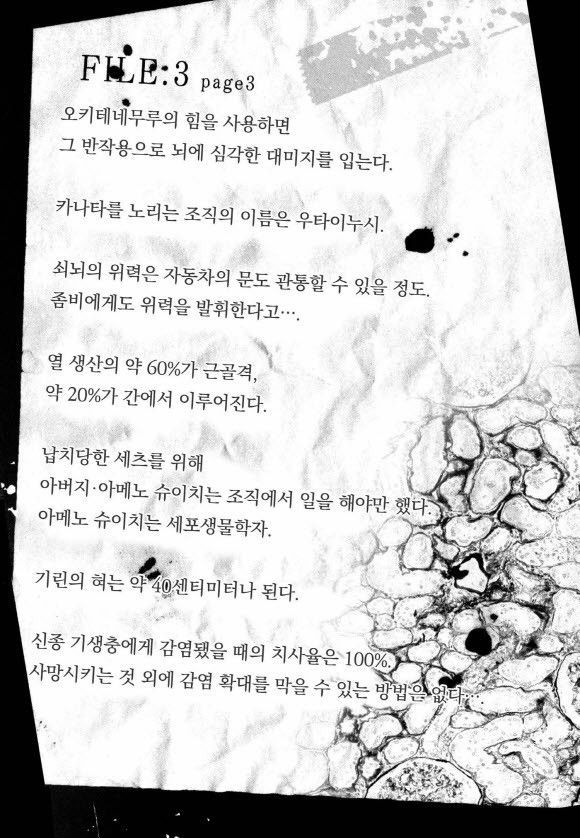 FILE:3 page3
오키테네무루의 힘을 사용하면
그 반작용으로 뇌에 심각한 대미지를 입는다.
카나타를 노리는 조직의 이름은 우타이누시.
쇠뇌의 위력은 자동차의 문도 관통할 수 있을 정도.
좀비에게도 위력을 발휘한다고….
열 생산의 약 60%가 근골격,
약 20%가 간에서 이루어진다.
납치당한 세츠를 위해
아버지·아메노 슈이치는 조직에서 일을 해야만 했다.
아메노 슈이치는 세포생물학자.
기린의 혀는 약 40센티미터나 된다.
신종 기생충에게 감염됐을 때의 치사율은 100%.
사망시키는 것 외에 감염 확대를 막을 수 있는 방법은 없다…